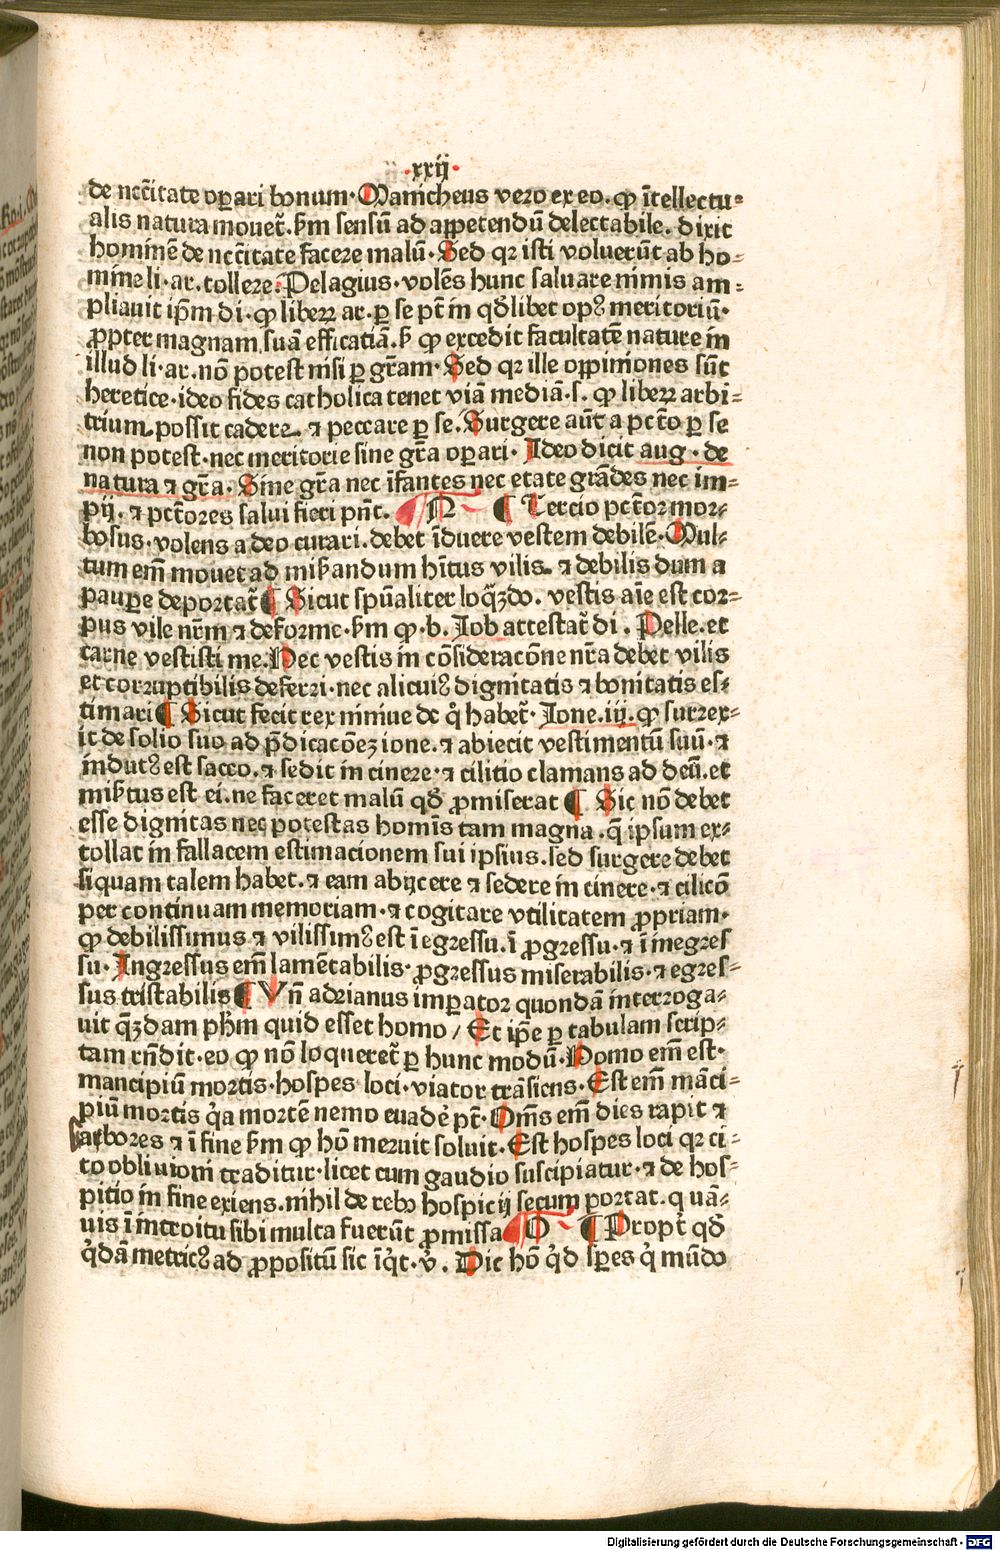 ·xxij·
de nec̄itate oꝑari bonum· Manicheus vero ex eo· ꝙ ītellectu⸗
alis natura mouet᷑. ẜm sensū ad appetendū delectabile. dixit
hominē de nec̄itate facere malū· Sed qꝛ isti voluerūt ab ho⸗
mine li· ar. tollere: Pelagius· volēs hunc saluare nimis am⸗
pliauit ip̄m di· ꝙ liberꝝ ar. ꝑ se pt̄ in qd̄libet opꝰ meritoriū·
ꝓpter magnam suā efficatiā. ẜ ꝙ excedit facultatē nature in
illud li· ar. nō potest nisi ꝑ gr̄am· Sed qꝛ ille oppiniones sūt
heretice· ideo fides catholica tenet viā mediā· s. ꝙ liberꝝ arbi⸗
trium possit cadere. ⁊ peccare ꝑ se. Surgere aūt a pctō ꝑ se
non potest· nec meritorie sine gr̄a oꝑari· Ideo dicit aug · de
natura ⁊ gr̄a. Sine gr̄a nec īfantes nec etate grādes nec im⸗
pij. ⁊ pctōres salui fieri pn̄t. ¶ N ¶ Tercio pctōr mor⸗
bosus· volens a deo curari. debet īduere vestem debilē· Mul⸗
tum em̄ mouet ad miẜandum hītus vilis. ⁊ debilis dum a
pauꝑe deportat᷑ ¶ Sicut spūaliter loq̄ꝫdo. vestis aīe est cor⸗
pus vile nr̄m ⁊ deforme· ẜm ꝙ· b. Iob attestat᷑ di . Pelle. et
carne vestisti me. Nec vestis in cōsideracōne nr̄a debet vilis
et corruptibilis deferri· nec alicuiꝰ dignitatis ⁊ bonitatis es⸗
timari ¶ Sicut fecit rex niniue de q̇ habet᷑· Ione. iij. ꝙ surrex⸗
it de solio suo ad p̄dicacōeꝫ ione. ⁊ abiecit vestimentū suū· ⁊
indutꝰ est sacco. ⁊ sedit in cinere· ⁊ cilitio clamans ad deū. et
miẜtus est ei. ne faceret malū qd̄ ꝓmiserat ¶ Sic nō debet
esse dignitas nec potestas homīs tam magna . q̄ ipsum ex⸗
tollat in fallacem estimacionem sui ipsius. sed surgere debet
siquam talem habet. ⁊ eam abijcere ⁊ sedere in cinere· ⁊ cilicō
per continuam memoriam· ⁊ cogitare vtilitatem ꝓpriam·
ꝙ debilissimus ⁊ vilissimꝰ est ī egressu. ī ꝓgressu· ⁊ ī inegres
su· Ingressus em̄ lamētabilis· ꝓgressus miserabilis· ⁊ egres⸗
sus tristabilis ¶ Vn̄ adrianus imꝑator quondā interroga⸗
uit q̄ꝫdam ph̄m quid esset homo / Et ip̄e ꝑ tabulam scrip⸗
tam rn̄dit· eo ꝙ nō loqueret᷑ ꝑ hunc modū· Homo em̄ est·
mancipiū mortis· hospes loci· viator trāsiens· Est em̄ māci⸗
piū mortis q̇a mortē nemo euadē pt̄· Om̄s em̄ dies rapit ⁊
arbores ⁊ ī fine ẜm ꝙ hō meruit soluit· Est hospes loci qꝛ ci⸗
to obliuioni traditur· licet cum gaudio suscipiatur· ⁊ de hos⸗
pitio in fine exiens. nihil de rebꝰ hospicij secum portat. q uā⸗
uis ī introitu sibi multa fuerūt ꝓmissa ¶ O ¶ Propt᷑ qd̄
q̇dā metricꝰ ad ꝓpositū sic īq̇t· v̇. Dic hō q̇d sꝑes q̇ mūdo
Digitalisierung gefördert durch die Deutsche Forschungsgemeinschaft - DFG